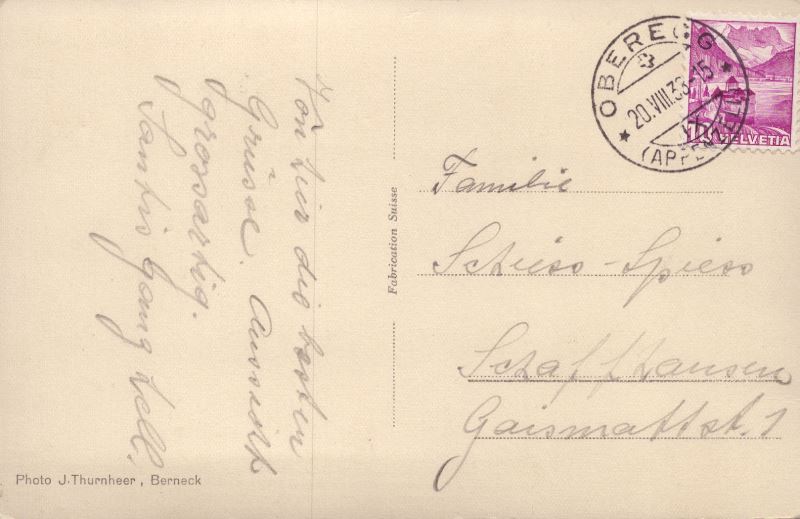 Von hier die besten
Grüsse. Aussicht
grossartig.
Santis ganz hell.
Photo J. Thurnheer, Berneck
Fabrication Suisse
OBEREGG
20.VIII.38-15
(APPENZELL)
10 HELVETIA
Familie
Schiess-Spiess
Schaffhausen
Gaismattst. 1